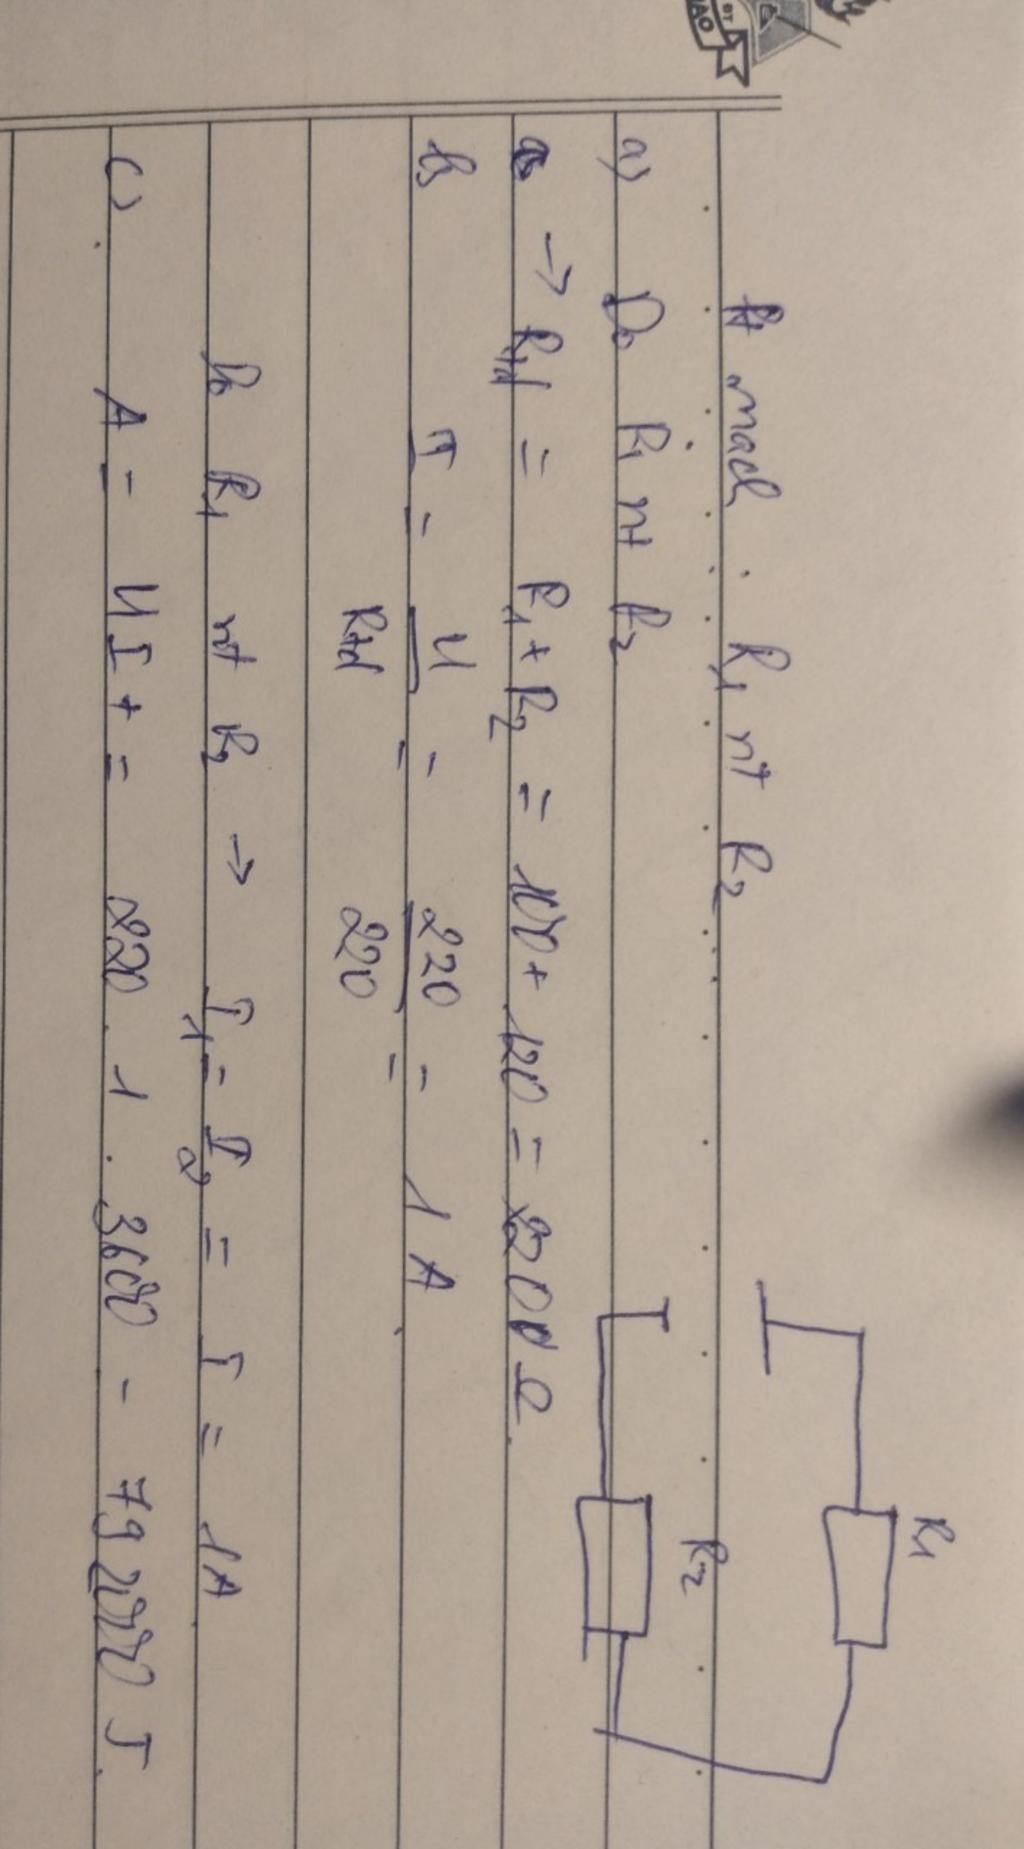 mạch R1 nt R2
R1
R2
a) Do R1 nt R2
→ Rtđ = R1 + R2 = 100 + 120 = 220 Ω
b, I = U / Rtđ = 220 / 220 = 1 A
R1 nt R2 → I1 = I2 = I = 1A
c) A = UIt = 220 . 1 . 3600 = 792000 J.